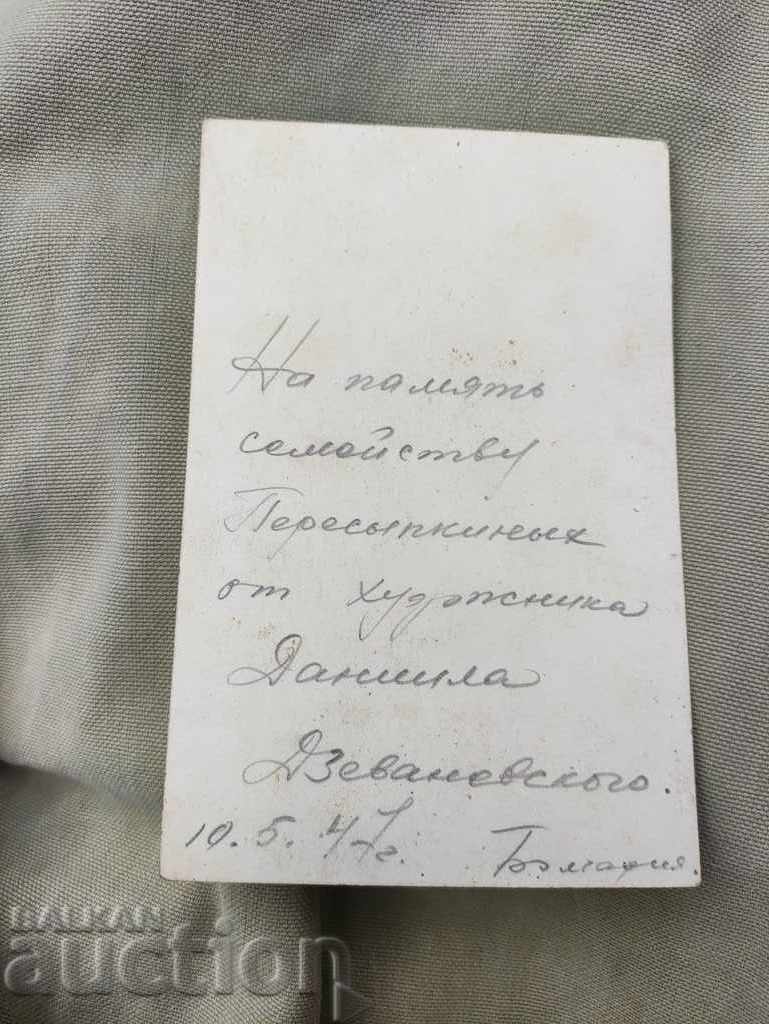 На память
семейству
Пересыпкиных
от художника
Даниила
Дзевановского.
10.5.47г. Болгария.
BALKAN
auction